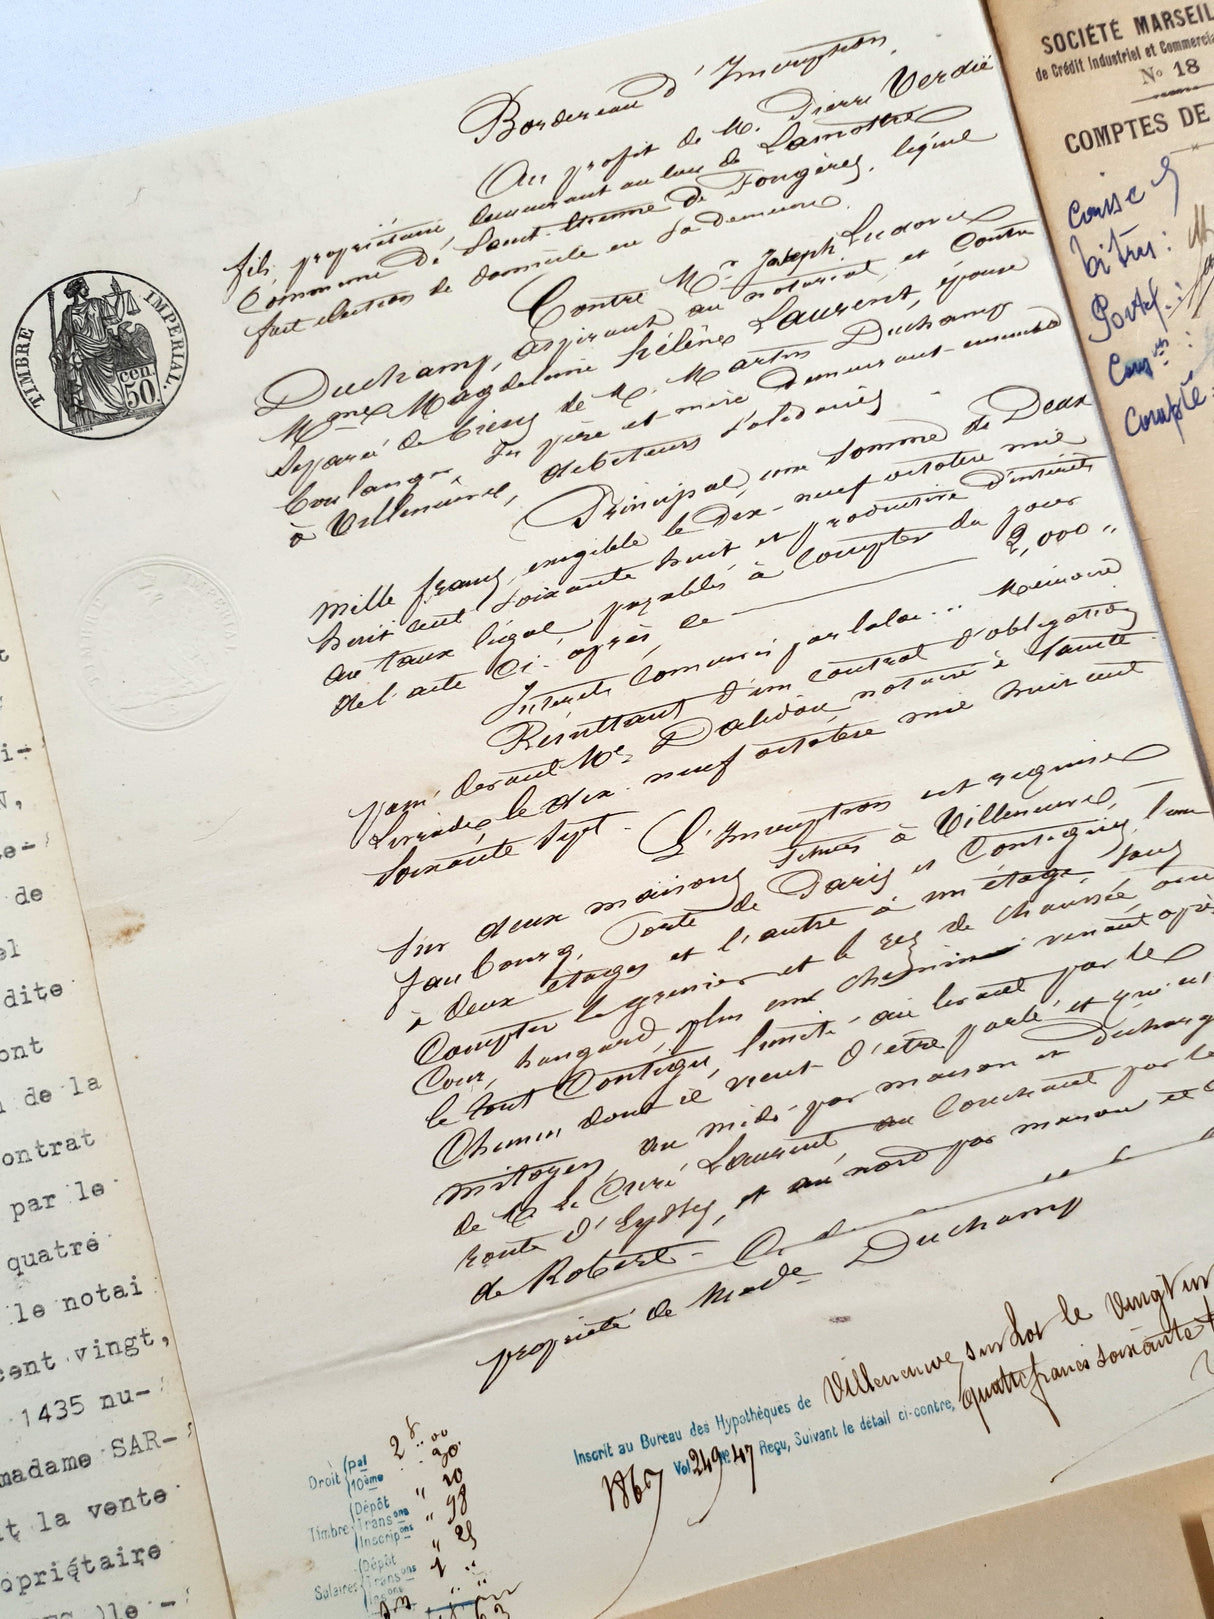 Bordereau d'Inscription.
Au profit de M. Pierre Verdié
fils, propriétaire, demeurant au lieu de Lamothe
Commune de Saint-Etienne de Fougères, lequel
fait élection de domicile en sa demeure.
Contre Mr Joseph Ludovic
Duchamp, aspirant au notariat, et Contre
Mme Magdeleine Hélène Laurent, épouse
séparée de biens de M. Martin Duchamp
boulanger, ses père et mère demeurant ensemble
à Villeneuve, débiteurs solidaires
Principal, une somme de Deux
mille francs, exigible le Dix-neuf octobre mil
huit cent soixante huit et productive d'intérêts
au taux légal payables à compter du jour
de l'acte ci-après, ce 2,000 "
Intérêts conservés par la loi... Mémoire
Résultant d'un contrat d'obligation
passé devant Me Dalidou, notaire à Sainte
Livrade, le dix-neuf octobre mil huit cent
soixante sept. L'Inscription est requise
sur deux maisons situées à Villeneuve,
faubourg, Porte de Paris et Contiguës, l'une
à deux étages et l'autre à un étage sans
Compter le grenier et le rez de chaussée, avec
Cour, hangard, plus une chemin venant après
le tout Contigu, limité au levant par le
Chemin dont il vient d'être parlé et qui est
mitoyen, au midi par maison et décharge
de M. le Curé Laurent, au Couchant par la
route d'Eysses, et au nord par maison et
de Robert.
propriété de Made Duchamp
Inscrit au Bureau des Hypothèques de Villeneuve sur Lot le vingt un
1867 Vol 249 No 47 Reçu, Suivant le détail ci-contre, quatre francs soixante
Droit Pal 2 f. 00
10ème 20
Timbre Dépôt " 20
Transons " 98
Inscripons " 25
Salaires Dépôt
Transons
TIMBRE IMPÉRIAL.
50 cen.
SOCIÉTÉ MARSEIL
de Crédit Industriel et Commercia
No 18
COMPTES DE
Caisse
titres :
Portef. :
Compte :
i-
de
el
dite
ont
de la
ontrat
par le
quatre
le notai
cent vingt,
1435 nu-
madame SAR-
t la vente
opriétaire
)le -